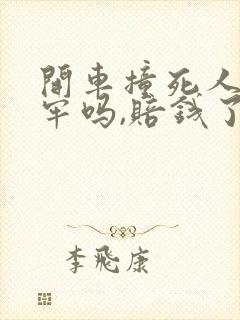 開車撞死人
牢吗,賠錢了
李飛康